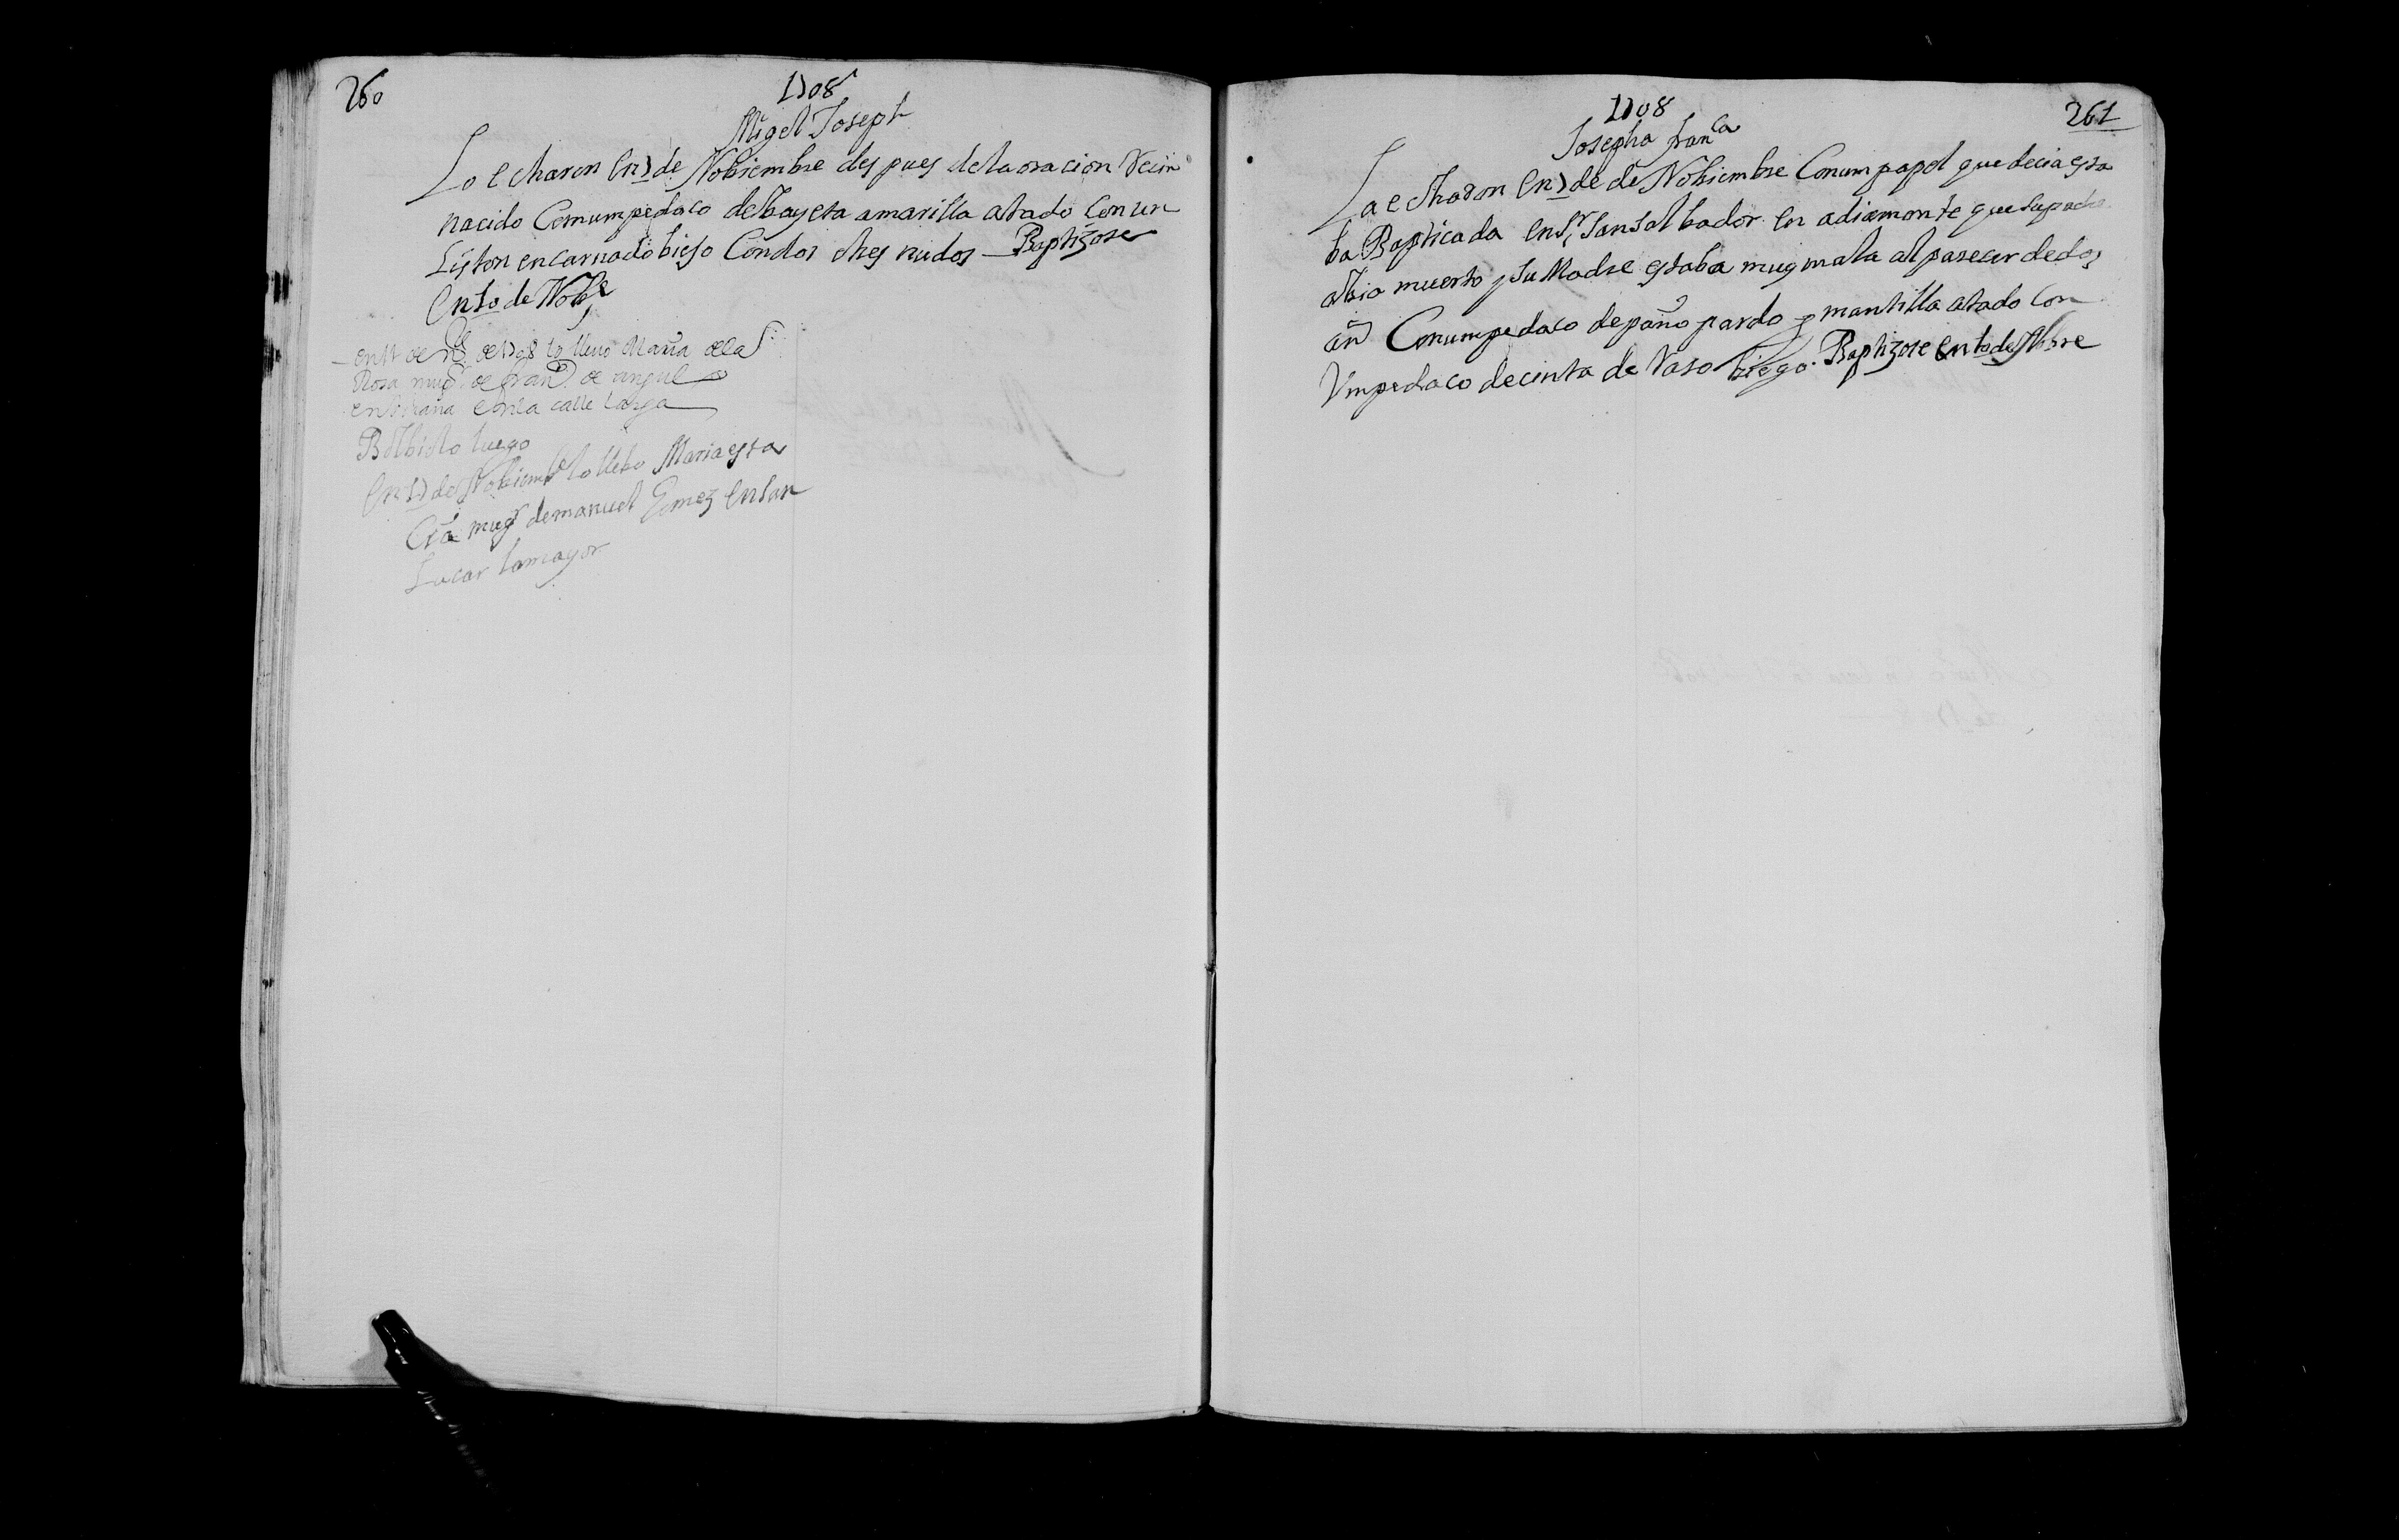 260
1708
Migel Joseph
Lo echaron en 7 de Nobiembre des pues de la oracion Recin
nacido Con um pedaco de bayeta amarilla atado Con un
Liston encarnado biejo Con dos o tres nudos - Baptizose
en 10 de Nobe
en 11 de Ne de 1708 lo lleuo Maria de la
Rosa mugr de Franco de angulo
en triana en la calle larga
Bolbiolo luego
en 17 de Nobiembe lo llebo Maria esta
mugr de manuel Gomez en San
Lucar la mayor
1708
261
Josepha Franca
La echaron en 7 de de Nobiembre Con um papel que decia esta
ba Bapticada en Sr San Salbador en adiamonte que su padre
abia muerto y su Madre estaba muy mala al parecer de dos
añ Con um pedaco de paño pardo y mantilla atado Con
Um pedaco de cinta de Raso biego. Baptizose en 10 de Nobre